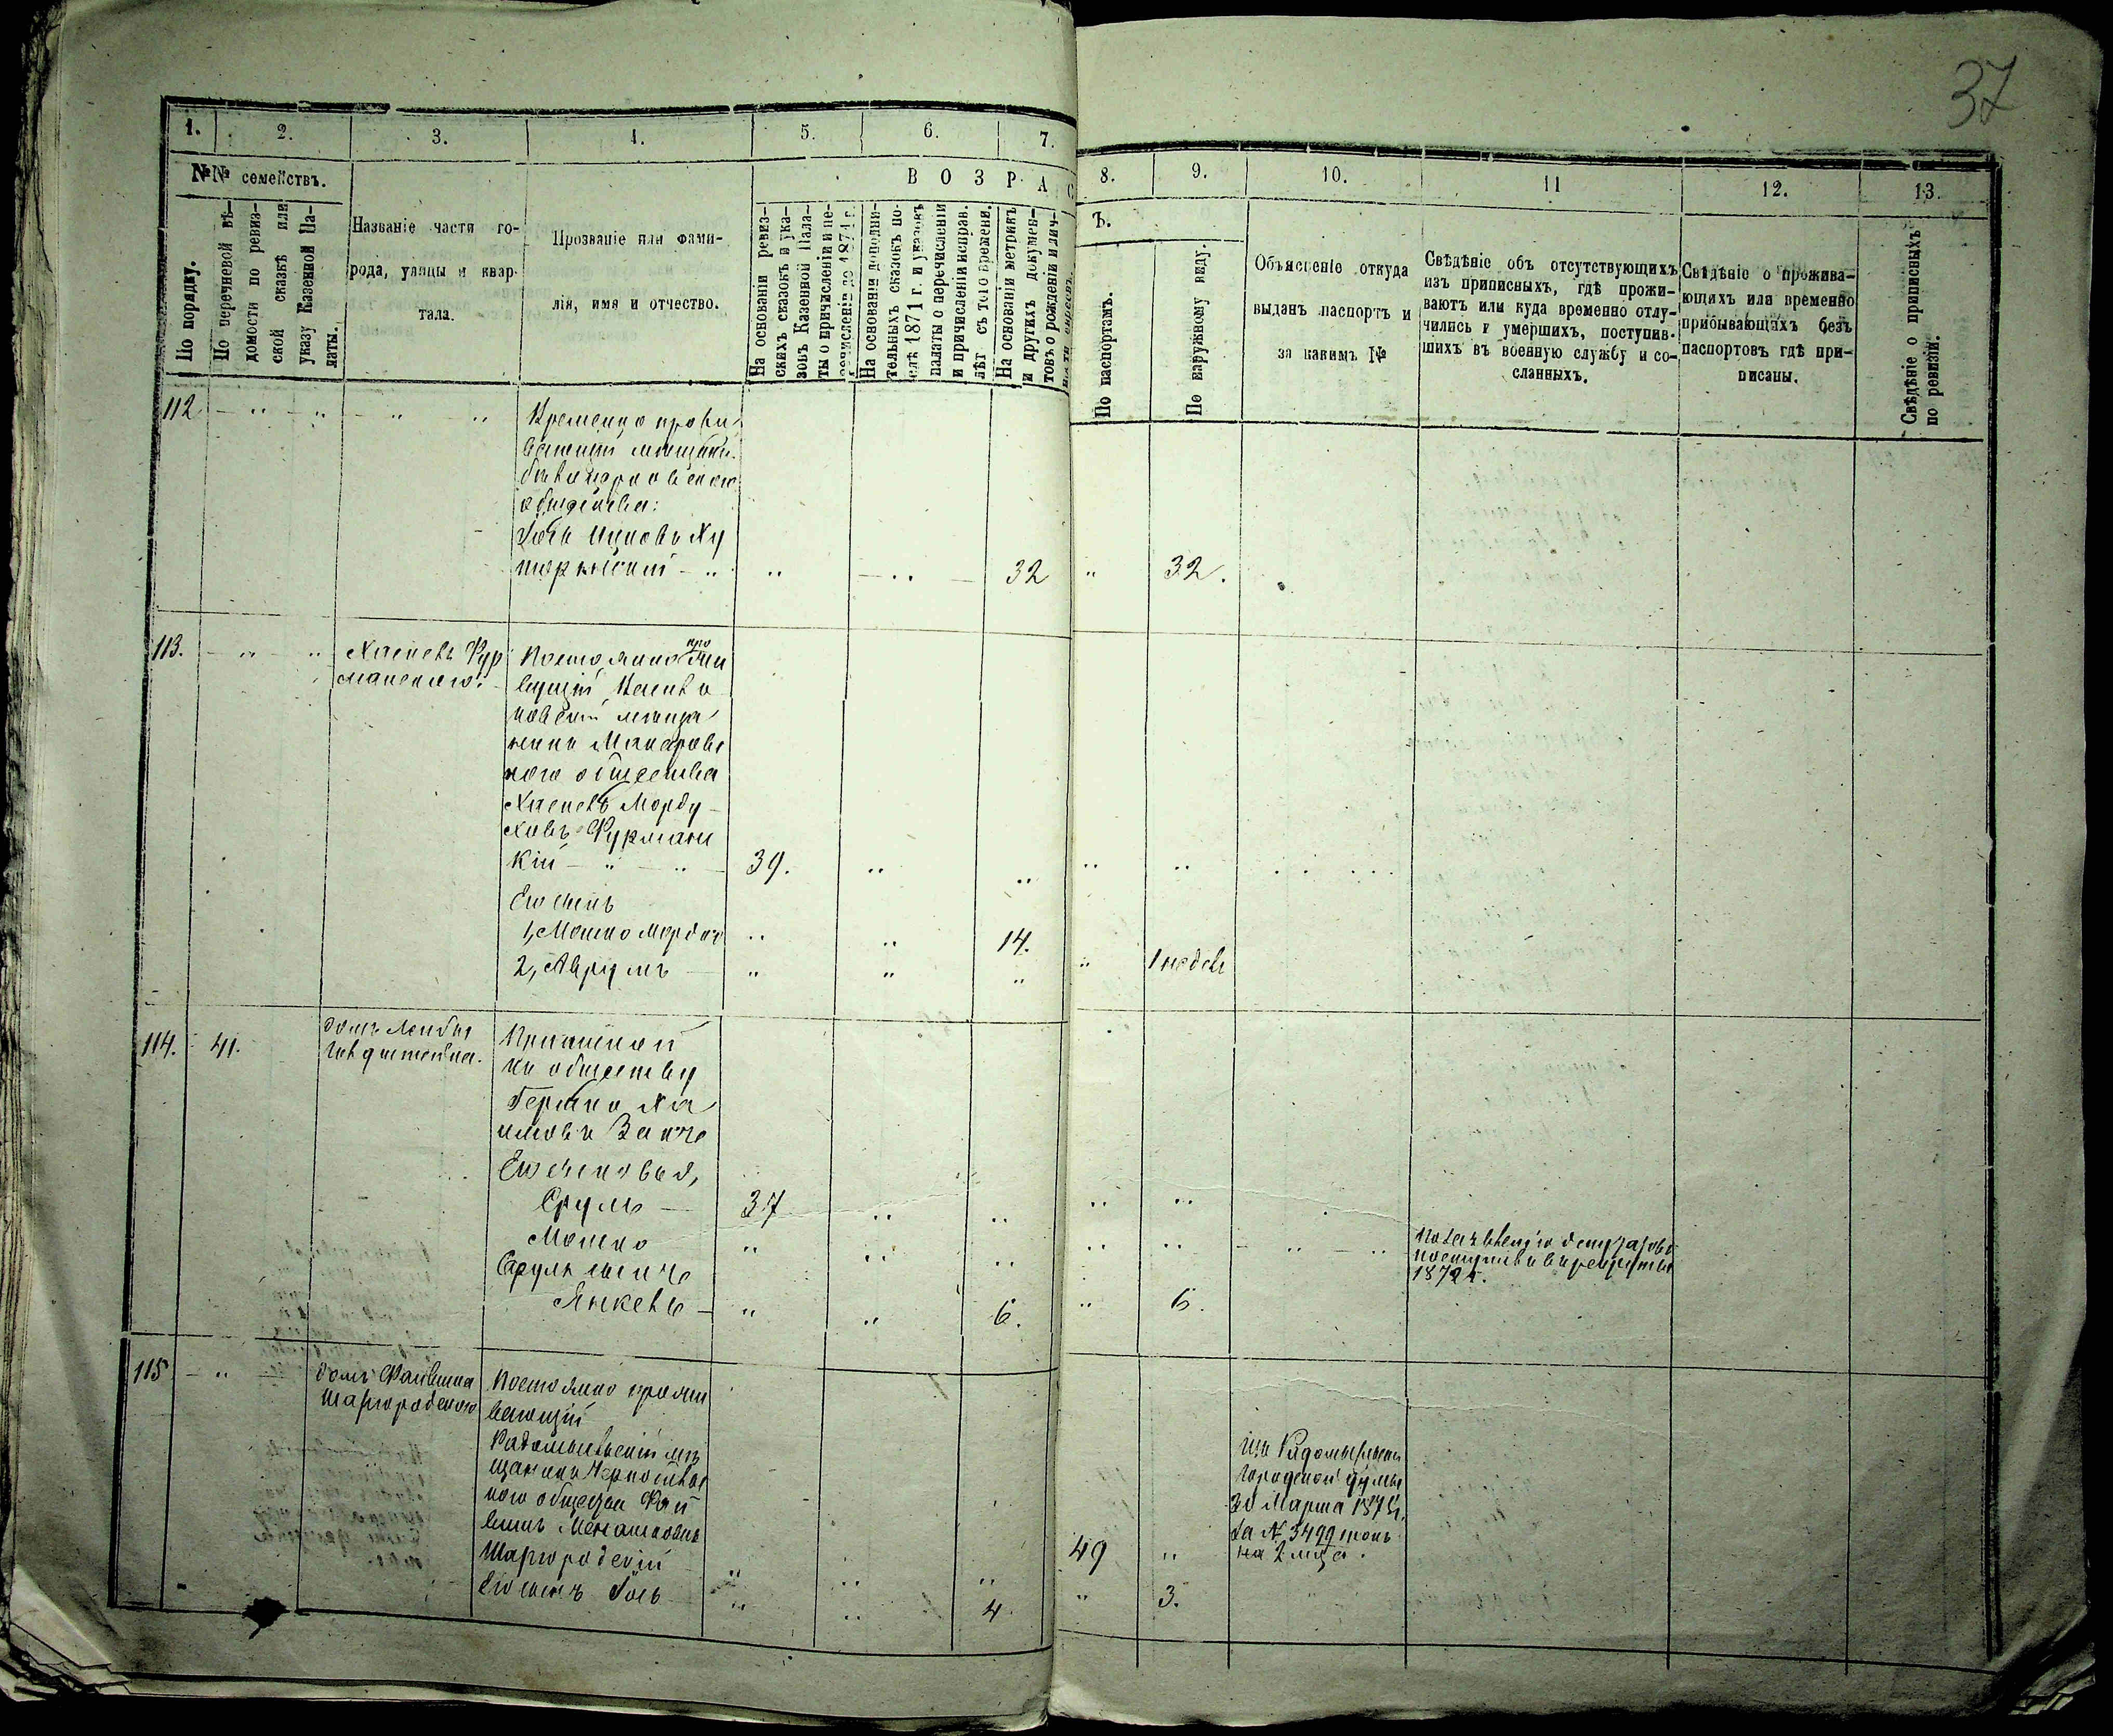 37
1. 2. 3. 4. 5. 6. 7. 8. 9. 10. 11 12. 13.
№№ семействъ.
По порядку.
По перечневой вѣ-
домости по ревиз-
ской сказкѣ или
указу Казенной Па-
латы.
Названіе части го-
рода, улицы и квар-
тала.
Прозваніе или фами-
лія, имя и отчество.
ВОЗРАСТЪ.
На основаніи ревиз-
скихъ сказокъ и ука-
зовъ Казенной Пала-
ты о причисленіи и пе-
речисленіи до 1874 г.
На основаніи дополни-
тельныхъ сказокъ по-
слѣ 1871 г. и указовъ
палаты о перечисленіи
и причисленіи исправ.
лѣт. съ того времени.
На основаніи метрикъ
и другихъ докумен-
товъ о рожденіи и лич-
По паспортамъ.
По наружному виду.
Объясненіе откуда
выданъ паспортъ и
за какимъ №
Свѣдѣніе объ отсутствующихъ
изъ приписныхъ, гдѣ прожи-
ваютъ или куда временно отлу-
чились и умершихъ, поступив-
шихъ въ военную службу и со-
сланныхъ.
Свѣдѣніе о прожива-
ющихъ или временно
прибывающихъ безъ
паспортовъ гдѣ при-
писаны.
Свѣдѣніе о приписныхъ
по ревизіи.
112
Временно прожи
вающій мѣщанин
общества:
Ицковъ Ху
торянскій 32 32.
113. Хаскель Фур
манского.
Постоянно прожи
вущій
новскій мѣща
нинъ Макаровс
кого общества
Хаскель Морду
ховъ Фурманс
кій 39.
Его сынъ
1, Мошко Мордко 14.
2, Аврумъ 1 недель
114. 41. домъ Лейбы
Приписной
къ обществу
Гершко Ха
имовъ Заиче
Его сыновья,
Сруль 37
Мошко
поступилъ въ рекруты
1872 г.
Сруля сынъ
Янкель 6. 6.
115 домъ Файвиша
Шаргородского
Постоянно прожи
вающій
Радомысльскій мѣ
щанинъ Чернобыльс
кого общества Фай
вишъ Менашковъ
Шаргородскій 49
изъ Радомысльск
городской думы
30 Марта 1874
за № 3499 срокъ
на 2 мѣся.
Его сынъ 4 3.